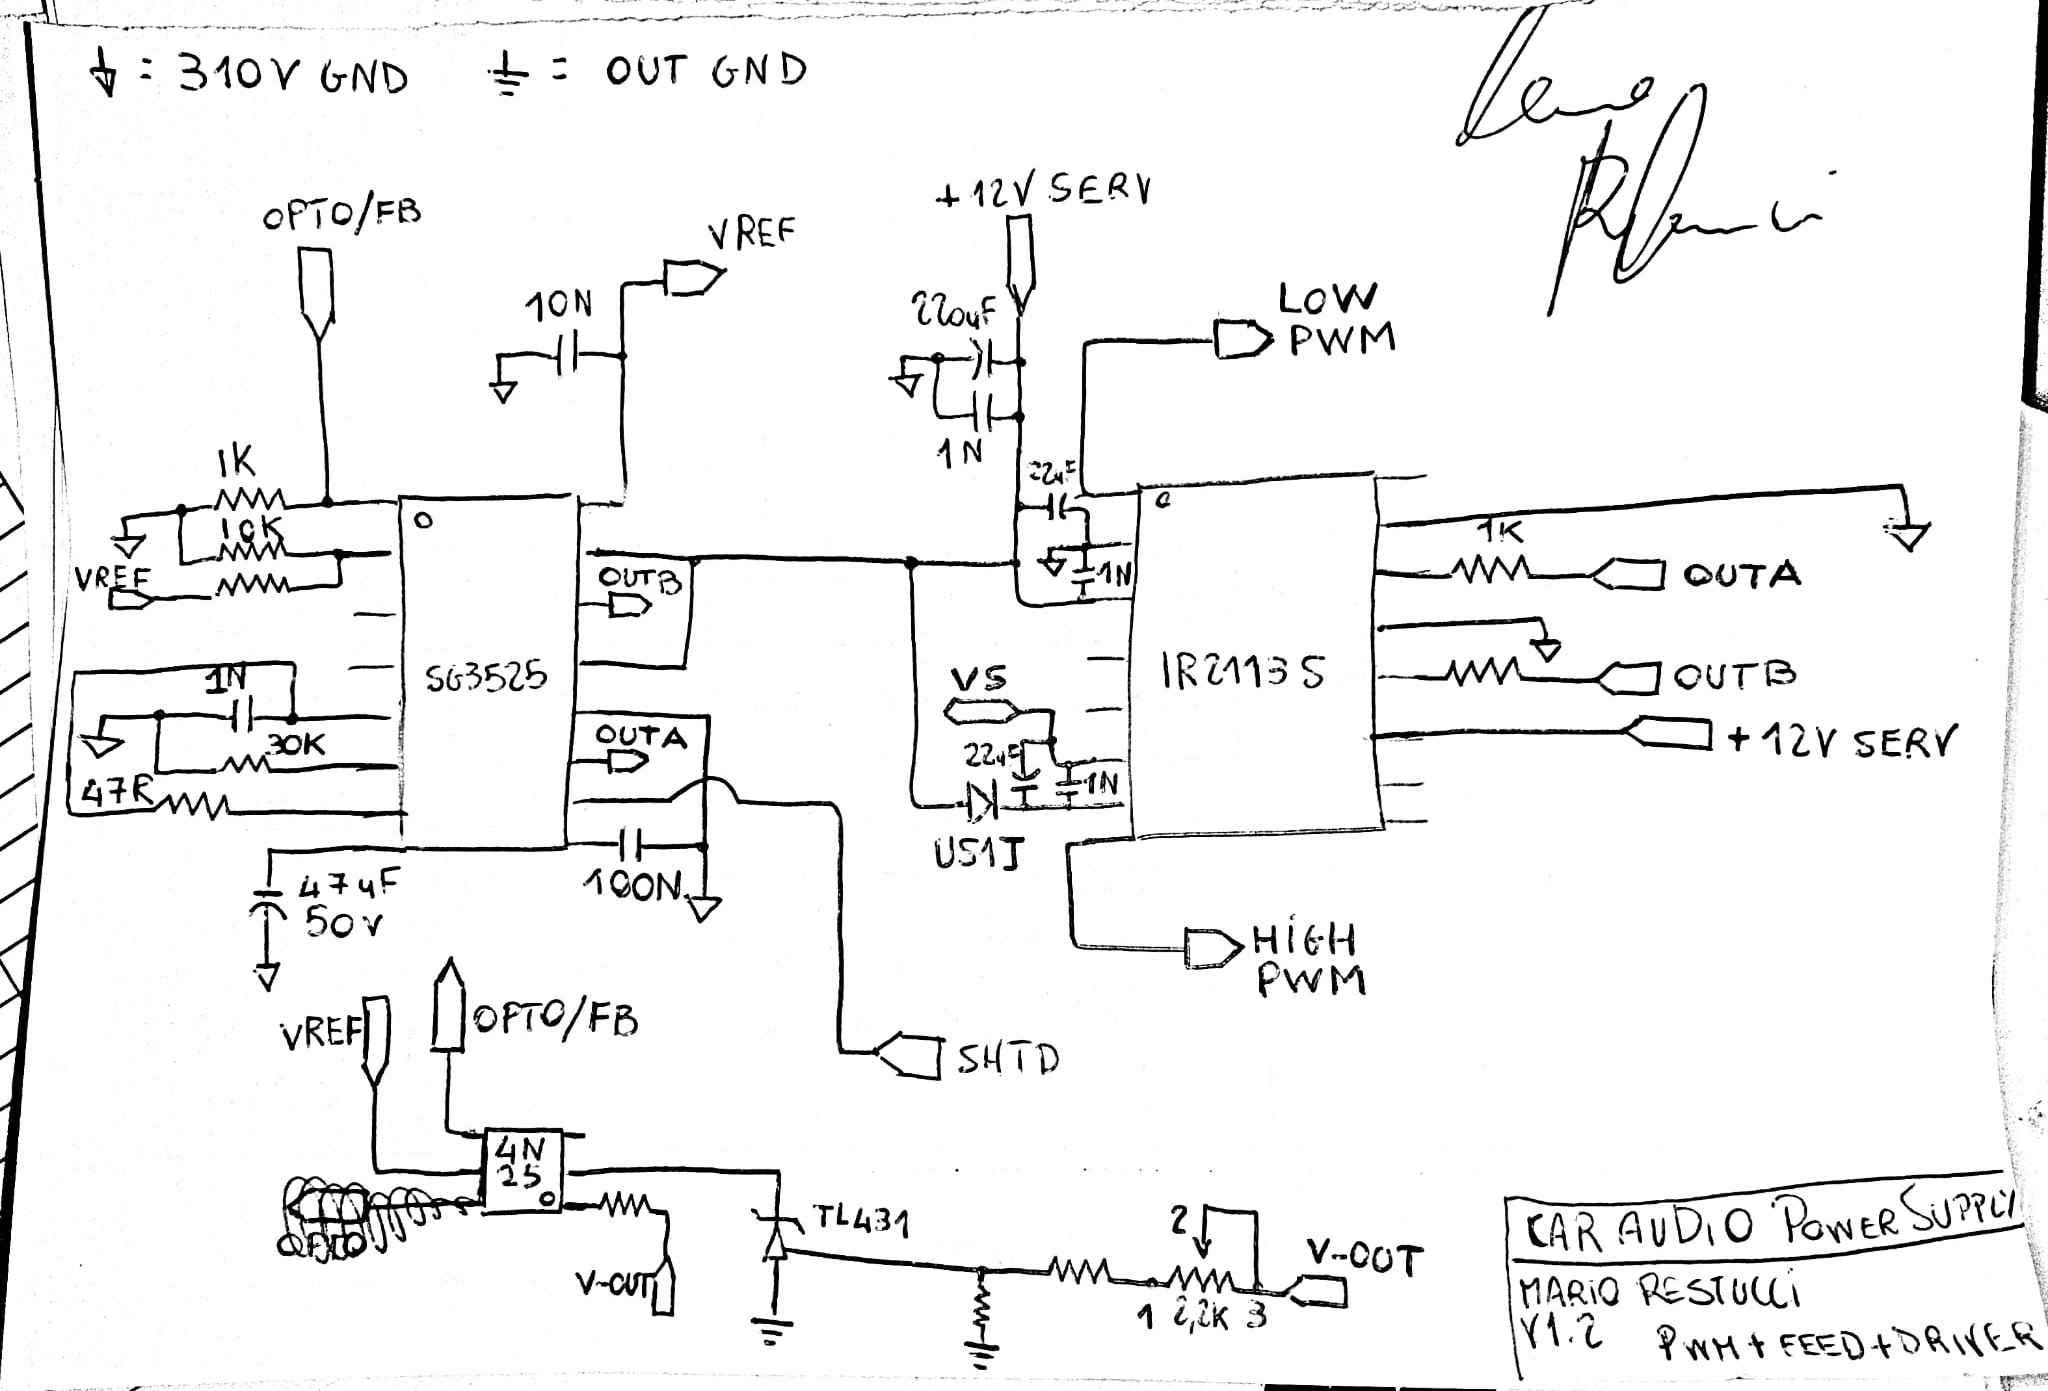 = 310V GND
= OUT GND
OPTO/FB
VREF
+12V SERV
10N
220uF
LOW
PWM
1N
1K
22uF
10K
1K
VREF
OUTB
1N
OUTA
SG3525
IR2113S
1N
VS
OUTB
30K
OUTA
22uF
+12V SERV
47R
1N
US1J
47uF
50V
100N
HiGH
PWM
VREF
OPTO/FB
SHTD
4N
25
TL431
2
V-OUT
V-OUT
1 2,2K 3
CAR AUDIO POWER SUPPLY
MARIO RESTUCCI
V1.2 PWM+FEED+DRIVER